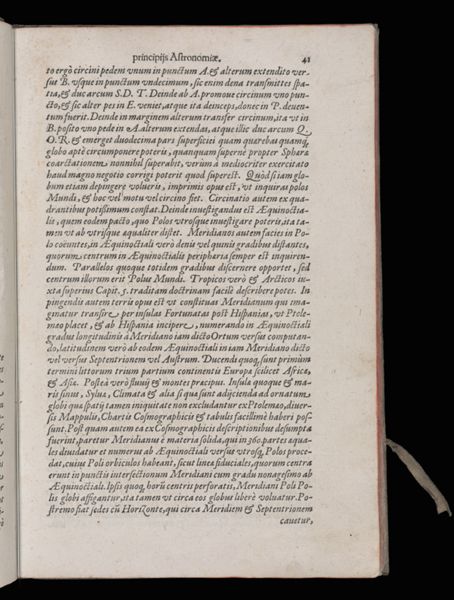 principijs Astronomiæ. 41
to ergò circini pedem vnum in punctum A. & alterum extendito ver-
sus B. vsque in punctum vndecimum, sic enim dena transmittes spa-
tia, & duc arcum S.D.T. Deinde ab A. promoue circinum vno pun-
cto, & sic alter pes in E. veniet, atque ita deinceps, donec in P. deuen-
tum fuerit. Deinde in marginem alterum transfer circinum, ita vt in
B. posito vno pede in A alterum extendas, atque illic duc arcum Q.
O.R. & emerget duodecima pars superficiei quam quærebas quamq;
globo aptè circumponere poteris, quanquam supernè propter Sphæræ
coarctationem nonnihil superabit, verùm à mediocriter exercitato
haud magno negotio corrigi poterit quod superest. Quòd si iam glo-
bum etiam depingere volueris, imprimis opus est, vt inquiras polos
Mundi, & hoc vel motu vel circino fiet. Circinatio autem ex qua-
drantibus potißimum constat. Deinde inuestigandus est Æquinoctia-
lis, quem eodem pacto, quo Polos vtrosque inuestigare poteris, ita ta-
men vt ab vtrisque æqualiter distet. Meridianos autem facies in Po-
lo coëuntes, in Æquinoctiali verò denis vel quinis gradibus distantes,
quorum centrum in Æquinoctialis peripharia semper est inquiren-
dum. Parallelos quoque totidem gradibus discernere oportet, sed
centrum illorum erit Polus Mundi. Tropicos verò & Arcticos in-
xta superius Capit. 5. traditam doctrinam facilè describere potes. In
pingendis autem terris opus est vt constituas Meridianum qui ima-
ginatur transire per insulas Fortunatas post Hispanias, vt Ptole-
meo placet, & ab Hispania incipere, numerando in Æquinoctiali
gradus longitudinis à Meridiano iam dicto Ortum versus computan-
do, latitudinem verò ab eodem Æquinoctiali in iam Meridiano dicto
vel versus Septentrionem vel Austrum. Ducendi quoq; sunt primùm
termini littorum trium partium continentis Europæ scilicet Africæ,
& Asiæ. Posteà verò fluuij & montes præcipui. Insulæ quoque & ma-
ris sinus, Syluæ, Climata & alia si qua sunt adjicienda ad ornatum
globi quæ spatij tamen iniquitate non excludantur ex Ptolemæo, diuer-
sis Mappulis, Chartis Cosmographicis & tabulis facillimè haberi pos-
sunt. Post quam autem ea ex Cosmographicis descriptionibus desumpta
fuerint, paretur Meridianus è materia solida, qui in 360. partes æqua-
les diuidatur et numerus ab Æquinoctiali versus vtrosq; Polos proce-
dat, cuius Poli orbiculos habeant, sicut lineæ fiduciales, quorum centra
erunt in punctis intersectionum Meridiani cum gradu nonagesimo ab
Æquinoctiali. Ipsis quoq; horū centris perforatis, Meridiani Poli Po-
lis globi affigantur, ita tamen vt circa eos globus liberè voluatur. Po-
stremo fiat sedes cū Horizonte, qui circa Meridiem & Septentrionem
cauetur,